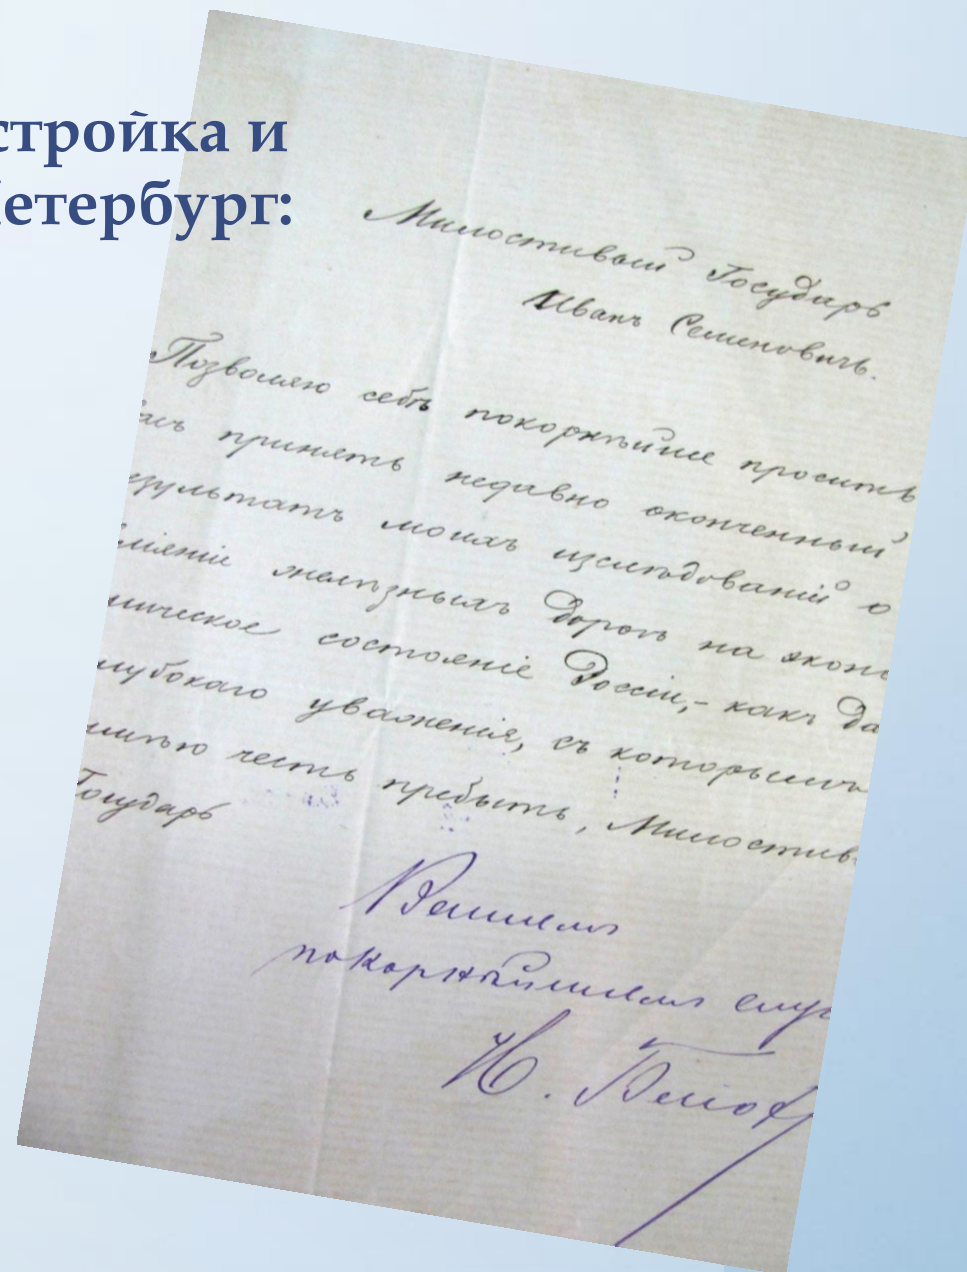 стройка и
етербург:
Милостивый Государь
Иванъ Семеновичъ.
Позволяю себѣ покорнѣйше просить
асъ принять недавно оконченный
езультатъ моихъ изслѣдованій о
ліяніи желѣзныхъ дорогъ на эконо
мическое состояніе Россіи,- какъ да
лубокаго уваженія, съ которымъ
имѣю честь пребыть, Милостив
Государь
Вашимъ
покорнѣйшимъ слу
И.